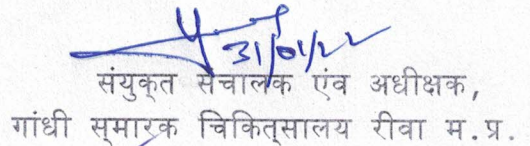 31/01/22
संयुक्त संचालक एंव अधीक्षक,
गांधी स्मारक चिकित्सालय रीवा म.प्र.